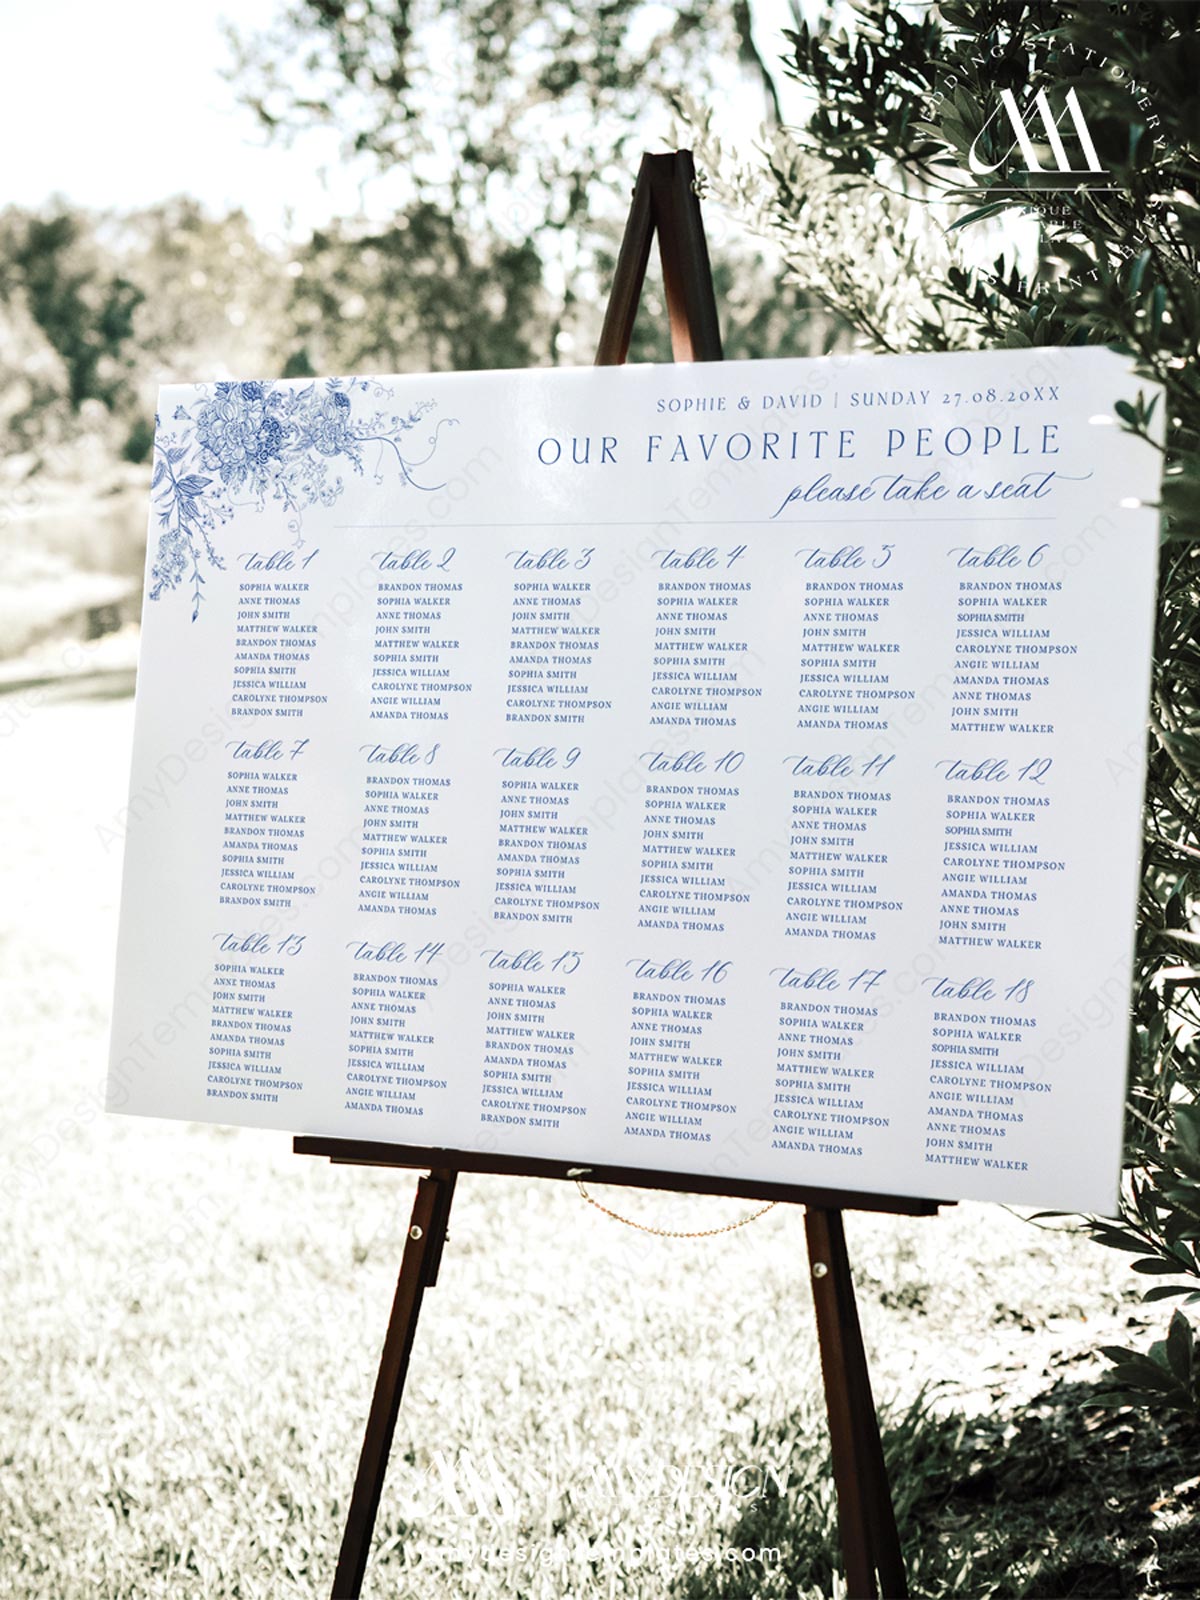 WEDDING STATIONERY
SOPHIE & DAVID | SUNDAY 27.08.20XX
OUR FAVORITE PEOPLE
please take a seat
table 1
SOPHIA WALKER
ANNE THOMAS
JOHN SMITH
MATTHEW WALKER
BRANDON THOMAS
AMANDA THOMAS
SOPHIA SMITH
JESSICA WILLIAM
CAROLYNE THOMPSON
BRANDON SMITH
table 2
BRANDON THOMAS
SOPHIA WALKER
ANNE THOMAS
JOHN SMITH
MATTHEW WALKER
SOPHIA SMITH
JESSICA WILLIAM
CAROLYNE THOMPSON
ANGIE WILLIAM
AMANDA THOMAS
table 3
SOPHIA WALKER
ANNE THOMAS
JOHN SMITH
MATTHEW WALKER
BRANDON THOMAS
AMANDA THOMAS
SOPHIA SMITH
JESSICA WILLIAM
CAROLYNE THOMPSON
BRANDON SMITH
table 4
BRANDON THOMAS
SOPHIA WALKER
ANNE THOMAS
JOHN SMITH
MATTHEW WALKER
SOPHIA SMITH
JESSICA WILLIAM
CAROLYNE THOMPSON
ANGIE WILLIAM
AMANDA THOMAS
table 5
BRANDON THOMAS
SOPHIA WALKER
ANNE THOMAS
JOHN SMITH
MATTHEW WALKER
SOPHIA SMITH
JESSICA WILLIAM
CAROLYNE THOMPSON
ANGIE WILLIAM
AMANDA THOMAS
table 6
BRANDON THOMAS
SOPHIA WALKER
SOPHIA SMITH
JESSICA WILLIAM
CAROLYNE THOMPSON
ANGIE WILLIAM
AMANDA THOMAS
ANNE THOMAS
JOHN SMITH
MATTHEW WALKER
table 7
SOPHIA WALKER
ANNE THOMAS
JOHN SMITH
MATTHEW WALKER
BRANDON THOMAS
AMANDA THOMAS
SOPHIA SMITH
JESSICA WILLIAM
CAROLYNE THOMPSON
BRANDON SMITH
table 8
BRANDON THOMAS
SOPHIA WALKER
ANNE THOMAS
JOHN SMITH
MATTHEW WALKER
SOPHIA SMITH
JESSICA WILLIAM
CAROLYNE THOMPSON
ANGIE WILLIAM
AMANDA THOMAS
table 9
SOPHIA WALKER
ANNE THOMAS
JOHN SMITH
MATTHEW WALKER
BRANDON THOMAS
AMANDA THOMAS
SOPHIA SMITH
JESSICA WILLIAM
CAROLYNE THOMPSON
BRANDON SMITH
table 10
BRANDON THOMAS
SOPHIA WALKER
ANNE THOMAS
JOHN SMITH
MATTHEW WALKER
SOPHIA SMITH
JESSICA WILLIAM
CAROLYNE THOMPSON
ANGIE WILLIAM
AMANDA THOMAS
table 11
BRANDON THOMAS
SOPHIA WALKER
ANNE THOMAS
JOHN SMITH
MATTHEW WALKER
SOPHIA SMITH
JESSICA WILLIAM
CAROLYNE THOMPSON
ANGIE WILLIAM
AMANDA THOMAS
table 12
BRANDON THOMAS
SOPHIA WALKER
SOPHIA SMITH
JESSICA WILLIAM
CAROLYNE THOMPSON
ANGIE WILLIAM
AMANDA THOMAS
ANNE THOMAS
JOHN SMITH
MATTHEW WALKER
table 13
SOPHIA WALKER
ANNE THOMAS
JOHN SMITH
MATTHEW WALKER
BRANDON THOMAS
AMANDA THOMAS
SOPHIA SMITH
JESSICA WILLIAM
CAROLYNE THOMPSON
BRANDON SMITH
table 14
BRANDON THOMAS
SOPHIA WALKER
ANNE THOMAS
JOHN SMITH
MATTHEW WALKER
SOPHIA SMITH
JESSICA WILLIAM
CAROLYNE THOMPSON
ANGIE WILLIAM
AMANDA THOMAS
table 15
SOPHIA WALKER
ANNE THOMAS
JOHN SMITH
MATTHEW WALKER
BRANDON THOMAS
AMANDA THOMAS
SOPHIA SMITH
JESSICA WILLIAM
CAROLYNE THOMPSON
BRANDON SMITH
table 16
BRANDON THOMAS
SOPHIA WALKER
ANNE THOMAS
JOHN SMITH
MATTHEW WALKER
SOPHIA SMITH
JESSICA WILLIAM
CAROLYNE THOMPSON
ANGIE WILLIAM
AMANDA THOMAS
table 17
BRANDON THOMAS
SOPHIA WALKER
ANNE THOMAS
JOHN SMITH
MATTHEW WALKER
SOPHIA SMITH
JESSICA WILLIAM
CAROLYNE THOMPSON
ANGIE WILLIAM
AMANDA THOMAS
table 18
BRANDON THOMAS
SOPHIA WALKER
SOPHIA SMITH
JESSICA WILLIAM
CAROLYNE THOMPSON
ANGIE WILLIAM
AMANDA THOMAS
ANNE THOMAS
JOHN SMITH
MATTHEW WALKER
AMYDESIGN
amydesigntemplates.com